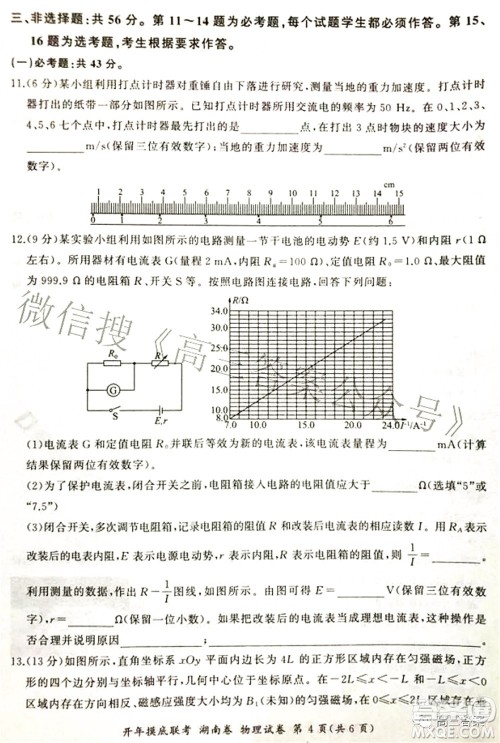 三、非选择题：共 56 分。第 11～14 题为必考题，每个试题学生都必须作答。第 15、
16 题为选考题，考生根据要求作答。
(一)必考题：共 43 分。
11.(6 分)某小组利用打点计时器对重锤自由下落进行研究，测量当地的重力加速度。打点计时
器打出的纸带一部分如图所示。已知打点计时器所用交流电的频率为 50 Hz。在 0、1、2、3、
4、5、6 七个点中，打点计时器最先打出的是____点，在打出 3 点时物块的速度大小为
____m/s(保留三位有效数字)；当地的重力加速度为____m/s²(保留两位有
效数字)。
1 2 3 4 5 6
0 1 2 3 4 5 6 7 8 9 10 11 12 13 14 cm 15
12.(9 分)某实验小组利用如图所示的电路测量一节干电池的电动势 E(约 1.5 V)和内阻 r(1 Ω
左右)。所用器材有电流表 G(量程 2 mA、内阻 Rg=100 Ω)，定值电阻 R₀=100 Ω、最大阻值
为 999.9 Ω 的电阻箱 R、开关 S 等。按照电路图连接电路，回答下列问题：
R₀ R
G
S E,r
R/Ω
34.0
30.0
26.0
22.0
18.0
14.0
10.0
8.0
7.0 10.0 13.0 16.0 19.0 22.0 24.0
(1)电流表 G 和定值电阻 R₀ 并联后等效为新的电流表，该电流表量程为____mA(计算
结果保留两位有效数字)。
(2)为了保护电流表，闭合开关前，电阻箱接入电路的电阻值应大于____Ω(选填“5”或
“7.5”)
(3)闭合开关，多次调节电阻箱，记录电阻箱的阻值 R 和改装后电流表的相应读数 I。用 RA 表示
改装后的电流表电阻，E 表示电源电动势，R 表示电阻箱的阻值，则 1/I=____。
利用测量的数据，作出 R－1/I 图线，如图所示，由图线可得 E=____V(保留三位有效数
字)，r=____Ω(保留一位小数)。如果把改装后的电流表当成理想电流表，这种操作是
否合理并说明原因____。
13.(13 分)如图所示，直角坐标系 xOy 平面内边长为 4L 的正方形区域内存在匀强磁场，正方
形的四个边与坐标轴平行，磁场区域中心在坐标原点 O。在－2L≤x≤2L 和 0≤y≤2L
区域内存在方向垂直纸面向里、大小为 B(未知)的匀强磁场；在－2L≤x≤2L 和－2L≤y≤0
开年摸底联考 湖南卷 物理试卷 第 4 页(共 6 页)
微信搜《高三答案公众号》
高三答案